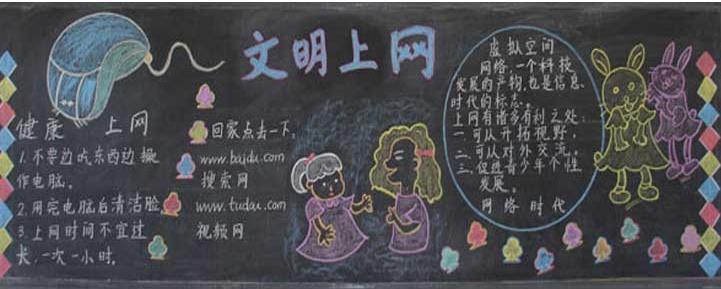 文明上网
健康 上网
1.不要边吃东西边操
作电脑。
2.用完电脑后清洁脸。
3.上网时间不宜过
长,一次一小时。
回家点去一下。
www.baidu.com
搜索网
www.tudou.com
视频网
虚拟空间
网络,一个科技
发展的产物,也是信息
时代的标志。
上网有诸多有利之处:
一.可从开拓视野,
二.可从对外交流。
三.促进青少年个性
发展。
网络时代